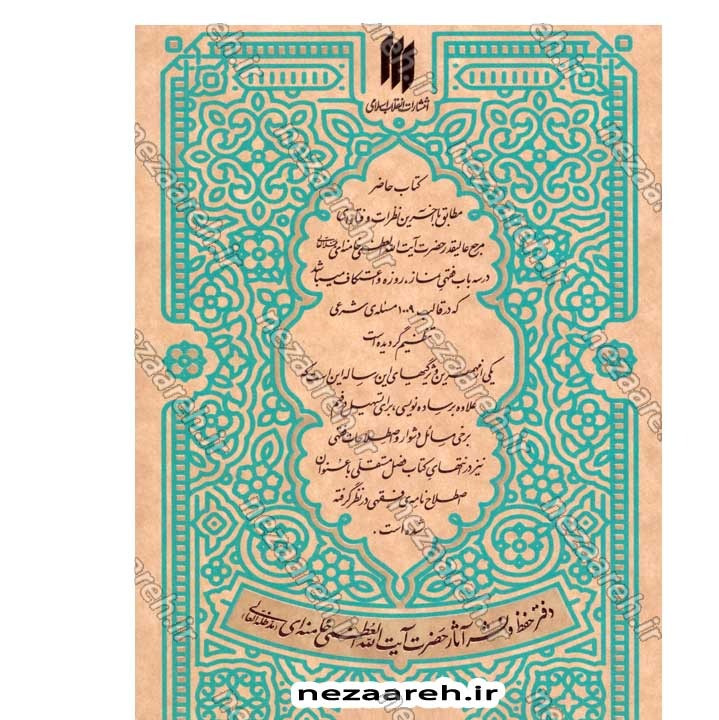 انتشارات انقلاب اسلامی
کتاب حاضر
مطابق با آخرین نظرات و فتاوای
مرجع عالیقدر حضرت آیت الله العظمی خامنه‌ای
در سه باب فقهی نماز، روزه و اعتکاف میباشد
که در قالب ۱۰۰۹ مسئله‌ی شرعی
تنظیم گردیده است
یکی از مهمترین ویژگیهای این رساله این است
علاوه بر ساده نویسی، برای تسهیل در فهم
برخی مسائل دشوار و اصطلاحات فقهی
نیز در انتهای کتاب فصل مستقلی با عنوان
اصطلاح نامه‌ی فقهی در نظر گرفته
شده است.
دفتر حفظ و نشر آثار حضرت آیت الله العظمی خامنه‌ای (مدظله‌العالی)
nezaareh.ir